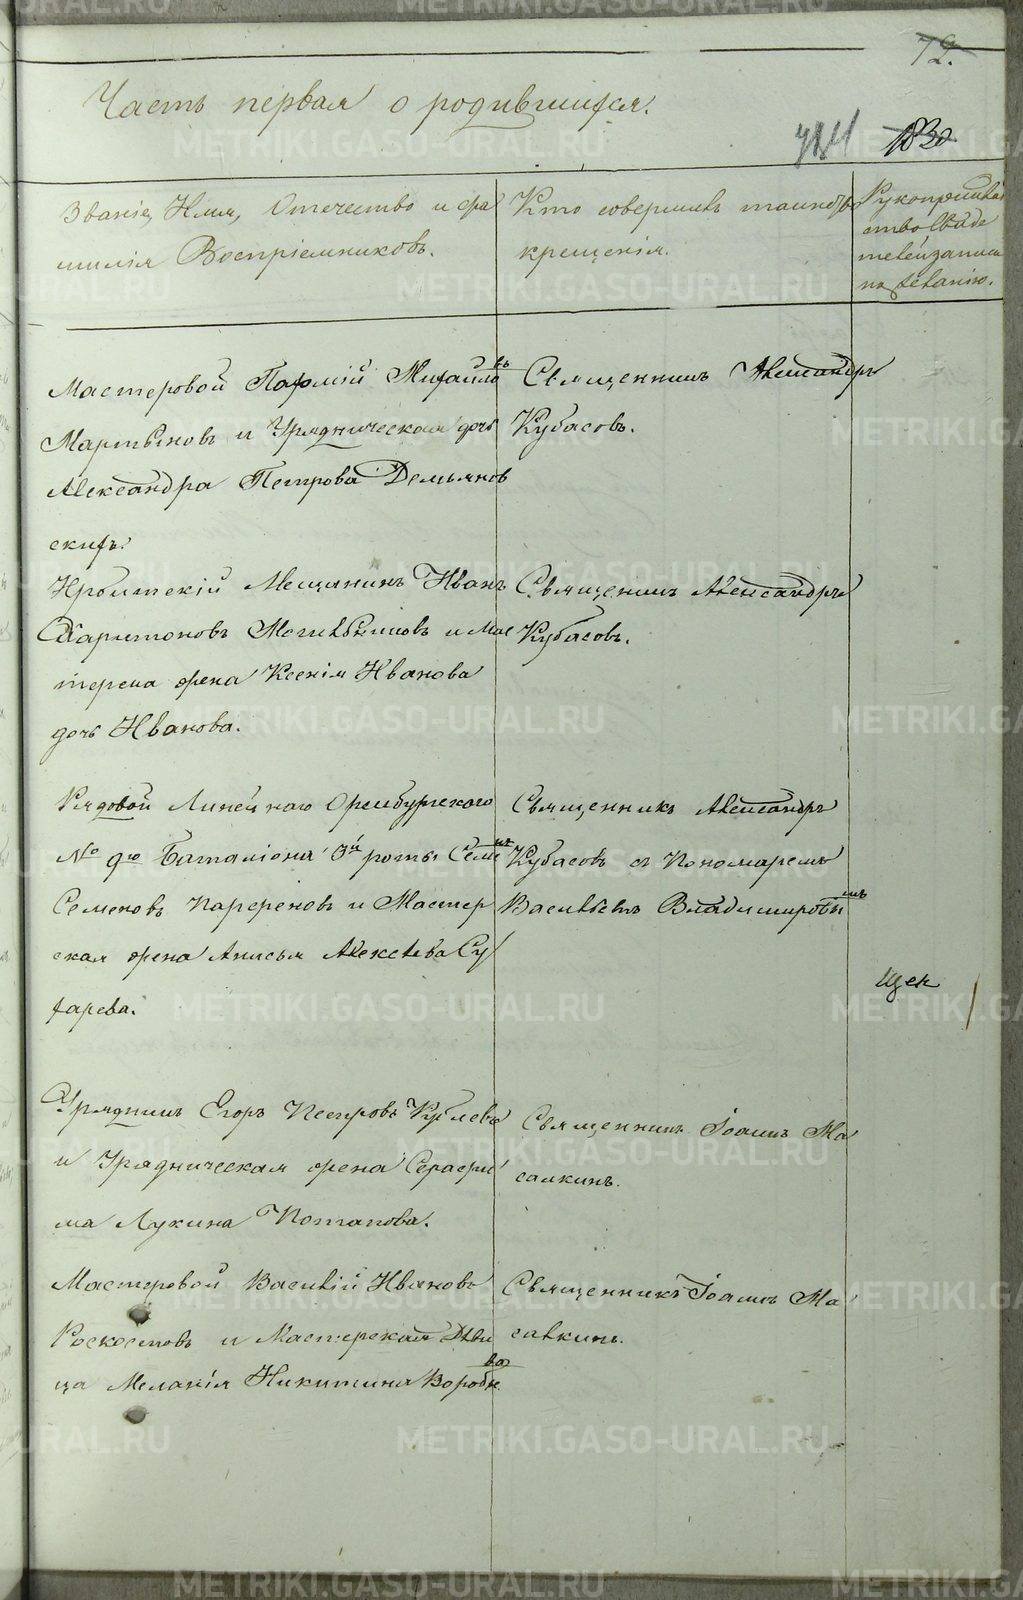 72.
Часть первая о родившихся.
Званіе, Имя, Отечество и фа
милія Воспріемниковъ.
Кто совершалъ таинство
крещенія.
Рукоприклад
ство свиде
телей записи
по желанію.
Мастеровой Пафмій Михайловъ
Мартыновъ и Урядническая дочь
Александра Петрова Демьянов
скихъ.
Священникъ Александръ
Кубасовъ.
Мещанинъ Иванъ
Харитоновъ и Мас
терска жена Ксенія Иванова
дочь Иванова.
Священникъ Александръ
Кубасовъ.
Рядовой Линейнаго Оренбургскаго
№ 9го Баталіона 3й роты Семенъ
Семеновъ Парфеновъ и Мастер
ская жена Анисья Алексѣева Су
харева.
Священникъ Александръ
Кубасовъ съ Пономаремъ
Васильемъ Владимировымъ
Урядникъ Егоръ Петровъ
и Урядническая жена Серафи
ма Лукина Потапова.
Священникъ Іоаннъ Ма
салкинъ.
Мастеровой Василій Ивановъ
и Мастерская Дѣви
ца Меланія Никитина Воробьева
Священникъ Іоаннъ Ма
салкинъ.
METRIKI.GASO-URAL.RU